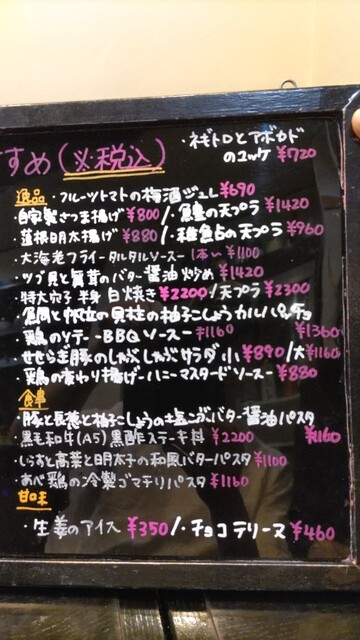 すめ(※税込)
・ネギトロとアボカド
のユッケ ¥720
逸品・フルーツトマトの梅酒ジュレ ¥690
・自家製さつま揚げ ¥800/・鱧の天プラ ¥1420
・蓮根明太揚げ ¥880/・稚鮎の天プラ ¥960
・大海老フライ-タルタルソース- 1本〜¥1100
・ツブ貝と舞茸のバター醤油炒め ¥1420
・特大穴子 半身 白焼き ¥2200/天プラ ¥2300
と帆立の貝柱の柚子こしょうカルパッチョ
・鶏のソテー-BBQソース- ¥1160 ¥1360
・せせらぎ豚のしゃぶしゃぶサラダ 小 ¥890/大 ¥1160
・鶏の変わり揚げ-ハニーマスタードソース- ¥880
食事
・豚と長葱と柚子こしょうの塩こぶバター醤油パスタ
・黒毛和牛(A5)黒酢ステーキ丼 ¥2200 ¥1160
・しらすと高菜と明太子の和風バターパスタ ¥1100
・あべ鶏の冷製ゴマチリパスタ ¥1160
甘味
・生姜のアイス ¥350/・チョコテリーヌ ¥460